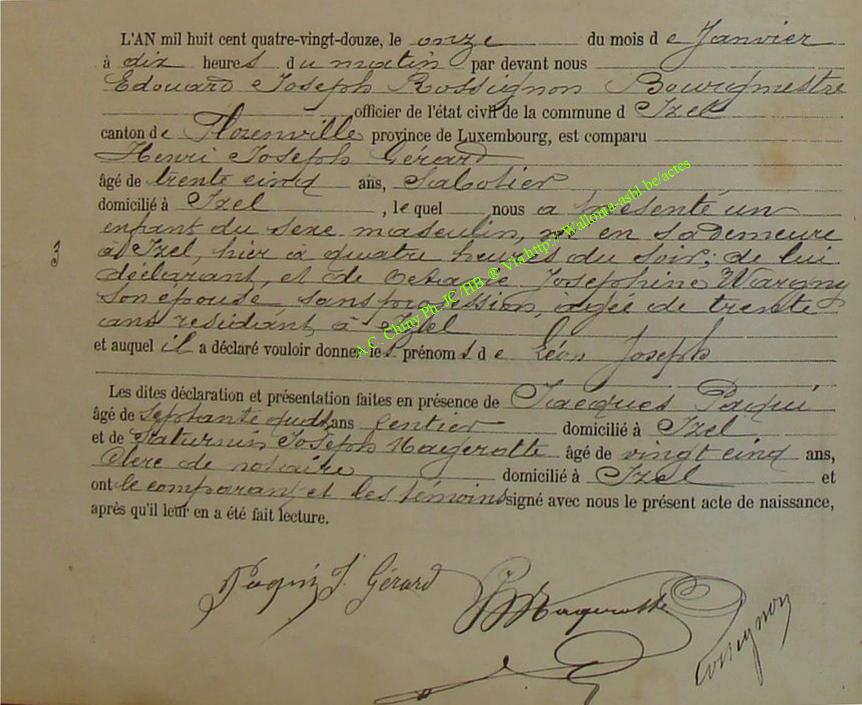 L'AN mil huit cent quatre-vingt-douze, le onze du mois de Janvier
à dix heures du matin par devant nous
Edouard Joseph Rossignon Bourgmestre
officier de l'état civil de la commune d Izel
canton de Florenville province de Luxembourg, est comparu
Henri Joseph Gérard
âgé de trente cinq ans, Sabotier
domicilié à Izel , le quel nous a présenté un
enfant du sexe masculin, né en sa demeure
3 à Izel, hier à quatre heures du soir; de lui
déclarant, et de Joséphine Wargny
son épouse, sans profession, agée de trente
ans résidant à Izel
et auquel il a déclaré vouloir donner les prénoms de Léon Joseph
Les dites déclaration et présentation faites en présence de Jacques Paqui
âgé de septante quatre ans rentier domicilié à Izel
et de Saturnin Joseph Hagerotte âgé de vingt cinq ans,
Clerc de notaire domicilié à Izel et
ont le comparant et les témoins signé avec nous le présent acte de naissance,
après qu'il leur en a été fait lecture.
Paqui J. Gérard Hagerotte Rossignon
A.C. Chiny Ph. JC/HB @ Via http://Wallonia-asbl.be/actes